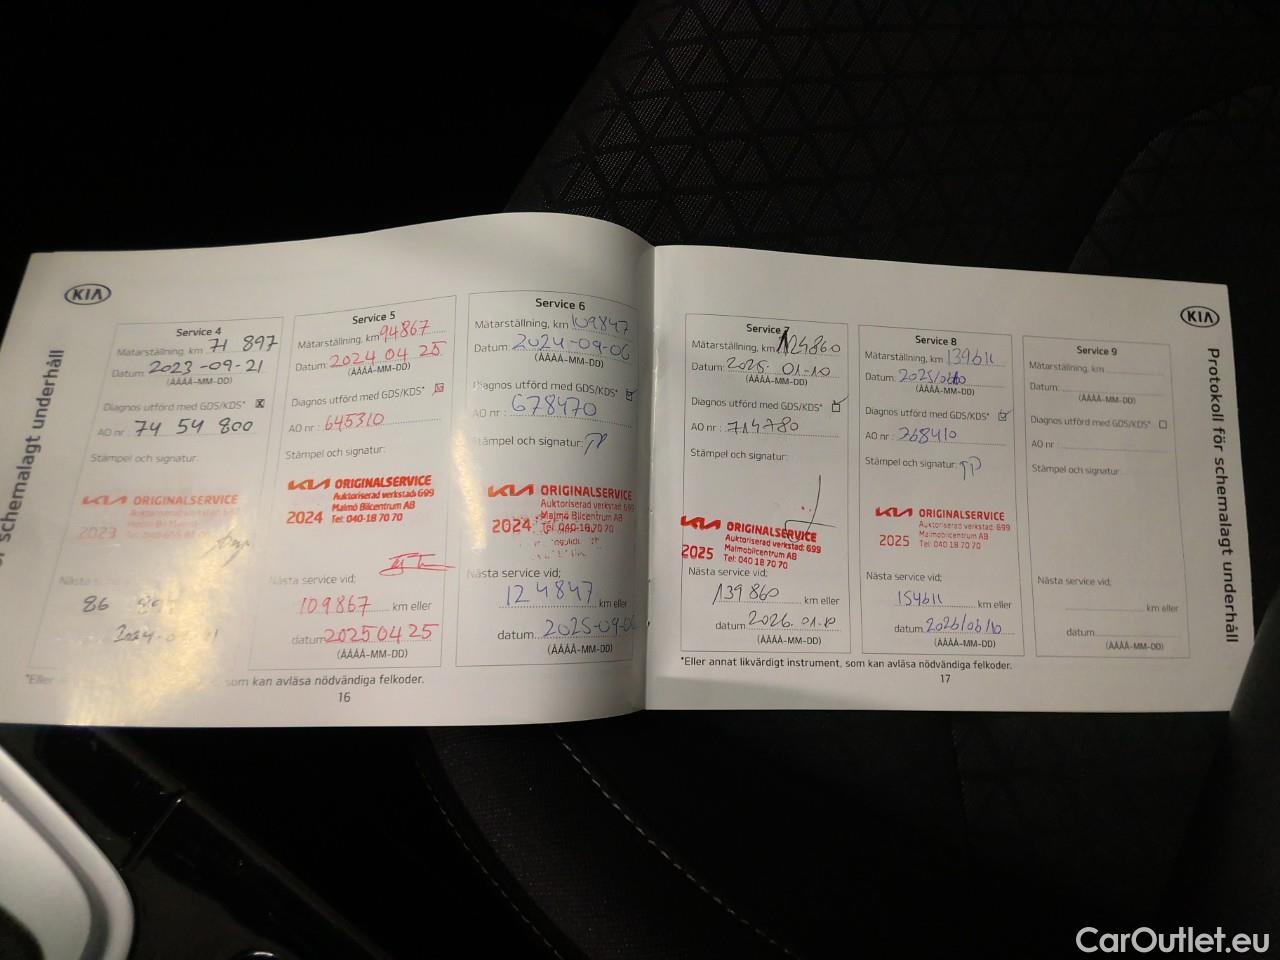 KIA
schemalagt underhåll
Service 4
Mätarställning, km 71 897
Datum: 2023-09-21
(ÅÅÅÅ-MM-DD)
Diagnos utförd med GDS/KDS*
AO nr: 74 54 800
Stämpel och signatur:
KIA ORIGINALSERVICE
2023
Nästa
86
*Eller
Service 5
Mätarställning, km 94867
Datum: 2024 04 25
(ÅÅÅÅ-MM-DD)
Diagnos utförd med GDS/KDS*
AO nr: 645310
Stämpel och signatur:
KIA ORIGINALSERVICE
Auktoriserad verkstad: 699
Malmö Bilcentrum AB
2024 Tel: 040-18 70 70
Nästa service vid;
109867 km eller
datum 2025 04 25
(ÅÅÅÅ-MM-DD)
Service 6
Mätarställning, km 109847
Datum: 2024-09-06
(ÅÅÅÅ-MM-DD)
Diagnos utförd med GDS/KDS*
AO nr: 678470
Stämpel och signatur:
KIA ORIGINALSERVICE
Auktoriserad verkstad: 699
Malmö Bilcentrum AB
2024 Tel: 040-18 70 70
Nästa service vid;
124847 km eller
datum 2025-09-06
(ÅÅÅÅ-MM-DD)
som kan avläsa nödvändiga felkoder.
16
KIA
Protokoll för schemalagt underhåll
Service 7
Mätarställning, km 124860
Datum: 2025-01-10
(ÅÅÅÅ-MM-DD)
Diagnos utförd med GDS/KDS*
AO nr: 714780
Stämpel och signatur:
KIA ORIGINALSERVICE
Auktoriserad verkstad: 699
Malmobilcentrum AB
2025 Tel: 040 18 70 70
Nästa service vid;
139860 km eller
datum 2026.01.10
(ÅÅÅÅ-MM-DD)
Service 8
Mätarställning, km 139611
Datum:
(ÅÅÅÅ-MM-DD)
Diagnos utförd med GDS/KDS*
AO nr: 768410
Stämpel och signatur:
KIA ORIGINALSERVICE
Auktoriserad verkstad: 699
Malmobilcentrum AB
2025 Tel: 040 18 70 70
Nästa service vid;
154611 km eller
datum 2026/06/10
(ÅÅÅÅ-MM-DD)
Service 9
Mätarställning, km
Datum:
(ÅÅÅÅ-MM-DD)
Diagnos utförd med GDS/KDS*
AO nr:
Stämpel och signatur:
Nästa service vid;
km eller
datum
(ÅÅÅÅ-MM-DD)
*Eller annat likvärdigt instrument, som kan avläsa nödvändiga felkoder.
17
CarOutlet.eu